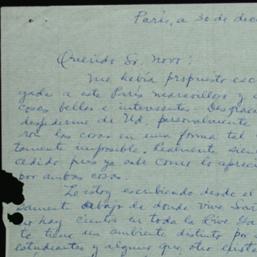 París, a 30 de dic
Querido Sr. Novo:
Me había propuesto esc
gado a este París maravilloso y
cosas bellas e interesantes. Desgrac
despedirme de Ud. personalmente
ron las cosas en una forma tal
tamente imposible. Realmente sien
cedido pues ya sabe como lo aprecio
por ambas cosas.
Le estoy escribiendo desde el
samente abajo de donde vive Sar
hay cientos en toda la Rive Ga
te tiene un ambiente distinto por
estudiantes y algunos que otro